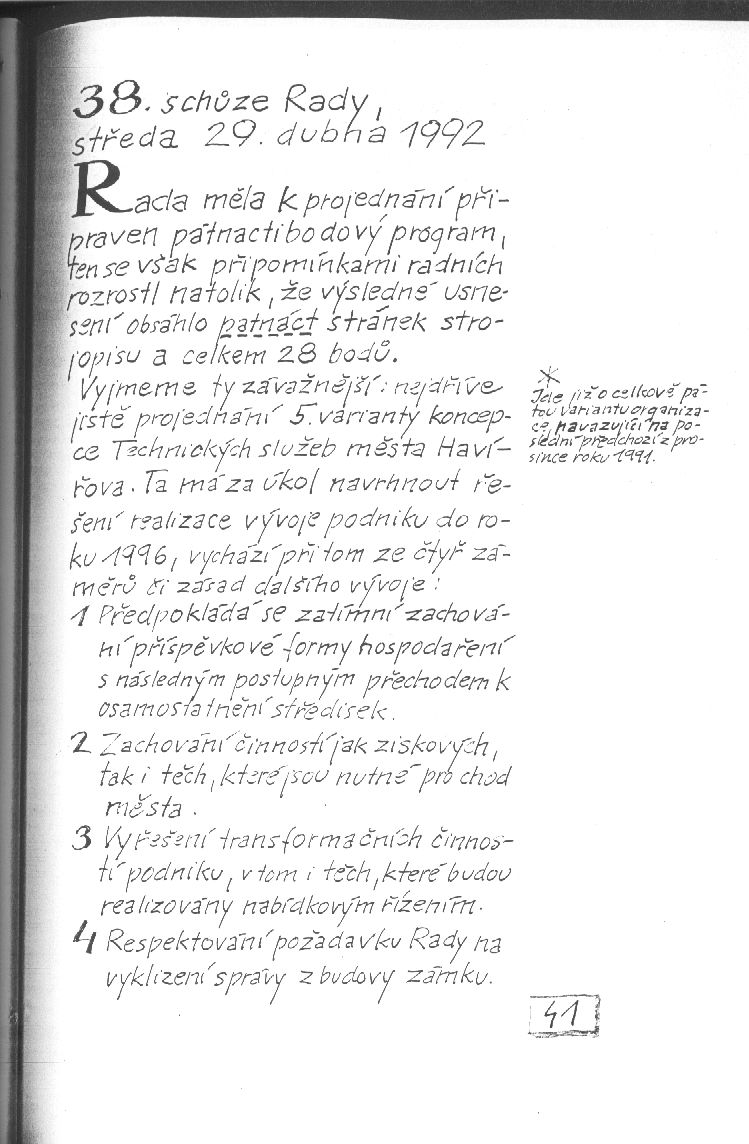 38. schůze Rady,
středa 29. dubna 1992
Rada měla k projednání při-
praven pátnactibodový program,
ten se však připomínkami radních
rozrostl natolik, že výsledné usne-
sení obsáhlo patnáct stránek stro-
jopisu a celkem 28 bodů.
Vyjmeme ty závažnější: nejdříve
jistě projednání 5. varianty koncep-
ce Technických služeb města Haví-
řova. Ta má za úkol navrhnout ře-
šení realizace vývoje podniku do ro-
ku 1996, vychází přitom ze čtyř zá-
měrů či zásad dalšího vývoje:
1 Předpokládá se zatímní zachová-
ní příspěvkové formy hospodaření
s následným postupným přechodem k
osamostatnění středisek.
2 Zachování činností jak ziskových,
tak i těch, které jsou nutné pro chod
města.
3 Vyřešení transformačních činnos-
tí podniku, v tom i těch, které budou
realizovány nabídkovým řízením.
4 Respektování požadavku Rady na
vyklizení správy z budovy zámku.
*
Jde již o celkově pá-
tou variantu organiza-
ce, navazující na po-
slední předchozí z pro-
since roku 1991.
41